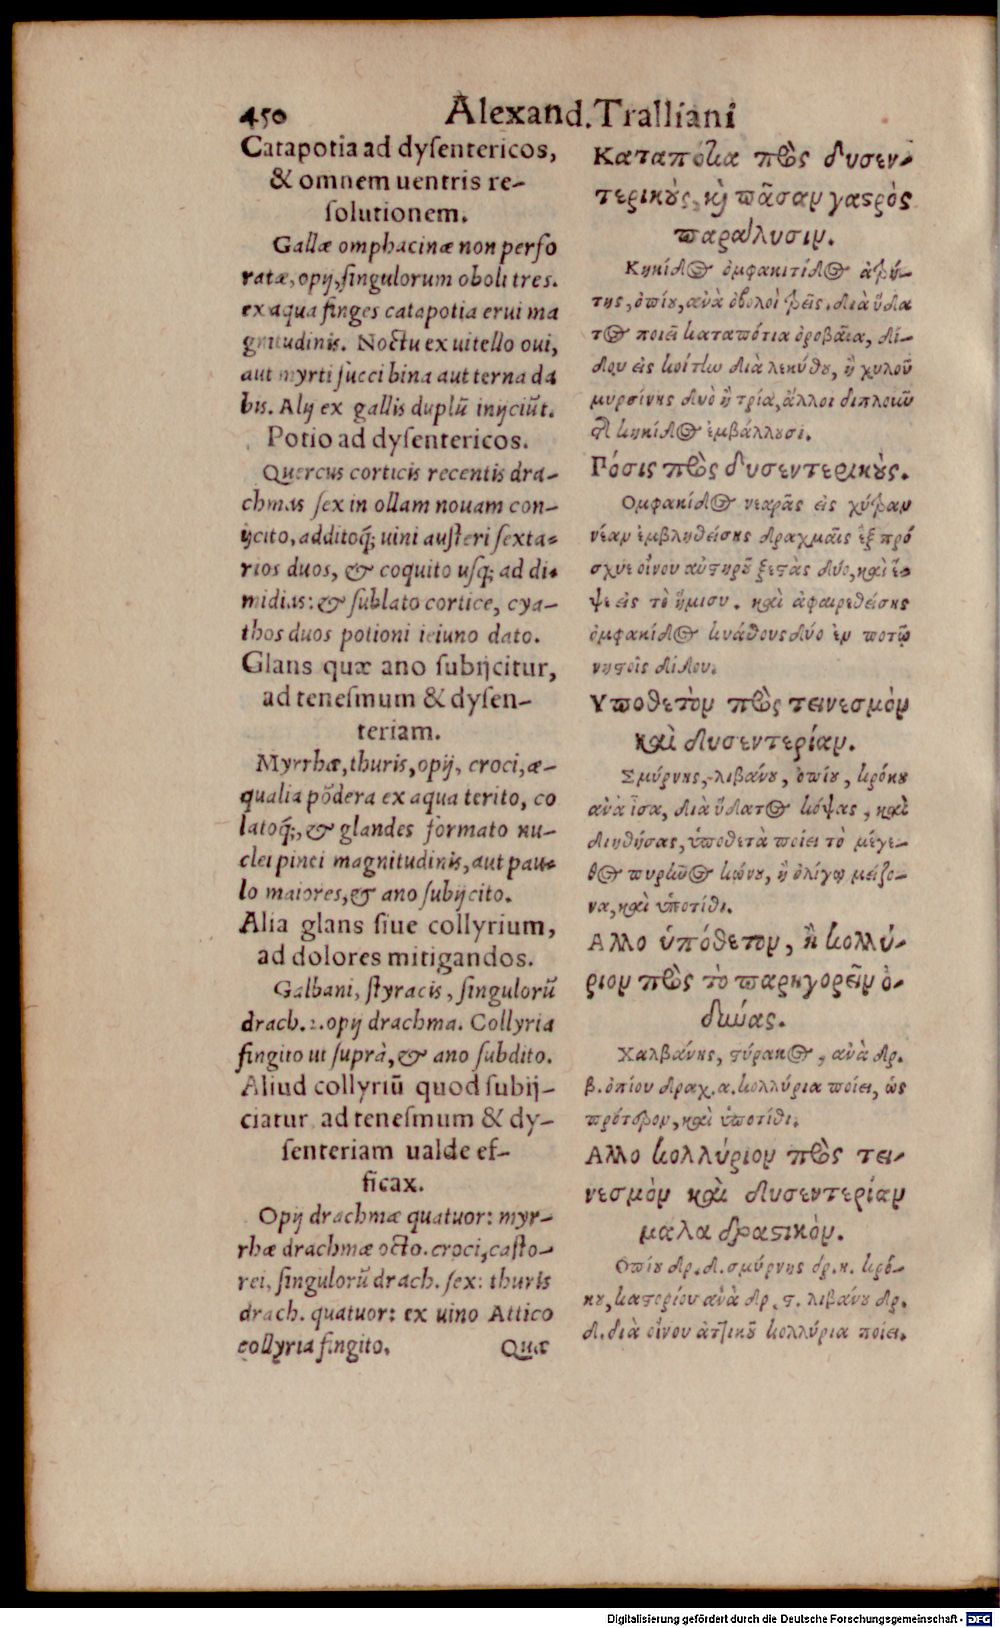 450 Alexand. Tralliani
Catapotia ad dysentericos,
& omnem uentris re-
solutionem.
Gallæ omphacinæ non perfo
ratæ, opij, singulorum oboli tres.
ex aqua finges catapotia erui ma
gnitudinis. Noctu ex uitello oui,
aut myrti succi bina aut terna da
bis. Alij ex gallis duplũ inijciũt.
Potio ad dysentericos.
Quercus corticis recentis dra-
chmas sex in ollam nouam con-
ijcito, additoq́; uini austeri sexta-
rios duos, & coquito usq; ad di-
midias: & sublato cortice, cya-
thos duos potioni ieiuno dato.
Glans quæ ano subijcitur,
ad tenesmum & dysen-
teriam.
Myrrhæ, thuris, opij, croci, æ-
qualia põdera ex aqua terito, co
latoq́;, & glandes formato nu-
clei pinei magnitudinis, aut pau-
lo maiores, & ano subijcito.
Alia glans siue collyrium,
ad dolores mitigandos.
Galbani, styracis, singulorũ
drach. 2. opij drachma. Collyria
fingito ut suprà, & ano subdito.
Aliud collyriũ quod subij-
ciatur ad tenesmum & dy-
senteriam ualde ef-
ficax.
Opij drachmæ quatuor: myr-
rhæ drachmæ octo. croci, casto-
rei, singulorũ drach. sex: thuris
drach. quatuor: ex uino Attico
collyria fingito.
Quæ
Καταπότια πρὸς δυσεν-
τερικοὺς, κỳ πᾶσαν γαστρὸς
παράλυσιν.
Κηκίδος ὀμφακιτίδος ἀτρύ-
της, ὀπίου, ἀνὰ ὀβολοὶ τρεῖς. διὰ ὕδα
τος ποιεῖ καταπότια ὀροβαῖα, δί-
δου εἰς κοίτlω διὰ λεκύθου, ἢ χυλοῦ
μυρσίνης δυὸ ἢ τρία, ἄλλοι διπλοιῶ
τ κηκίδος ἐμβάλλουσι.
Πόσις πρὸς δυσεντερικοὺς.
Ομφακίδος νεαρᾶς εἰς χύτραν
νέαν ἐμβληθείσης δραχμαῖς ἓξ πρό
σχυε οἴνου αὐστηροῦ ξεστὰς δύο, καὶ ἕ-
ψε εἰς τὸ ἥμισυ. καὶ ἀφαιρεθείσης
ὀμφακίδος κυάθους δύο ἐν ποτῷ
νηστοῖς δίδου.
Υποθετὸν πρὸς τεινεσμὸν
καὶ δυσεντερίαν.
Σμύρνης, λιβάνου, ὀπίου, κρόκου
ἀνὰ ἶσα, διὰ ὕδατος κόψας, καὶ
διηθήσας, ὑποθετὰ ποίει τὸ μέγε-
θος πυρlῶος κώνου, ἢ ὀλίγῳ μείζο-
να, καὶ ὑποτίθι.
Αλλο ὑπόθετον, ἢ κολλύ-
ριον πρὸς τὸ παρηγορεῖν ὀ-
δύνας.
Χαλβάνης, στύρακος, ἀνὰ δρ.
β. ὀπίου δραχ. α. κολλύρια ποίει, ὡς
πρότερον, καὶ ὑποτίθι.
Αλλο κολλύριον πρὸς τει-
νεσμὸν καὶ δυσεντερίαν
μάλα δραστικὸν.
Οπίου δρ. δ. σμύρνης δρ. η. κρό-
κου, καστορίου ἀνὰ δρ. ϛ. λιβάνου δρ.
δ. διὰ οἴνου ἀττικοῦ κολλύρια ποίει.
Digitalisierung gefördert durch die Deutsche Forschungsgemeinschaft - DFG